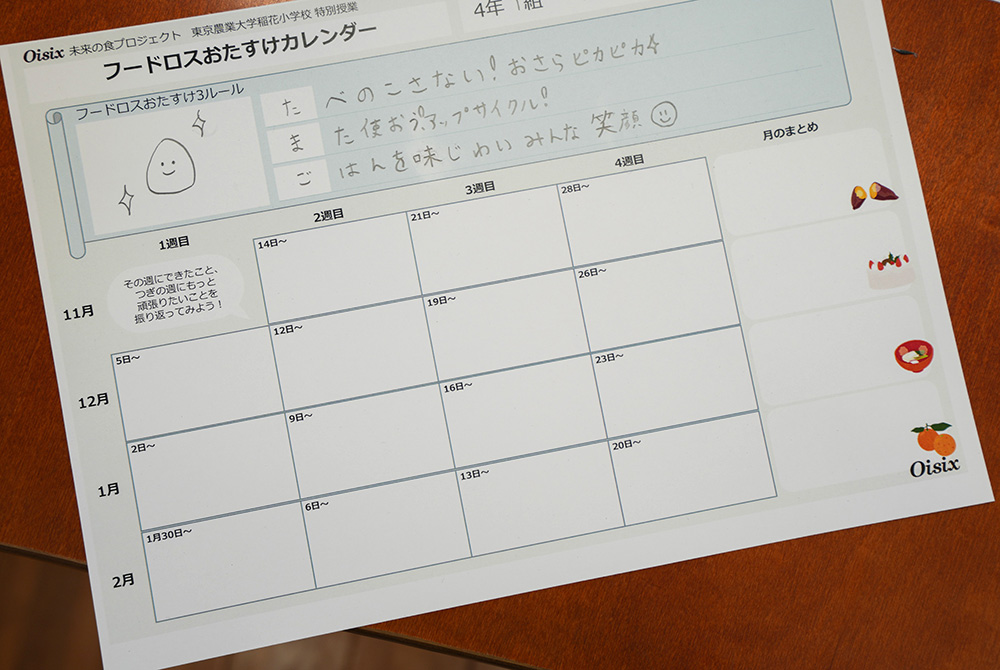 Oisix 未来の食プロジェクト 東京農業大学稲花小学校 特別授業
4年 1組
フードロスおたすけカレンダー
フードロスおたすけ3ルール
た べのこさない!おさらピカピカ
ま た使おう!アップサイクル!
ご はんを味じわい みんな 笑顔
1週目 2週目 3週目 4週目 月のまとめ
11月
その週にできたこと、
つぎの週にもっと
頑張りたいことを
振り返ってみよう!
14日~ 21日~ 28日~
12月
5日~ 12日~ 19日~ 26日~
1月
2日~ 9日~ 16日~ 23日~
2月
1月30日~ 6日~ 13日~ 20日~
Oisix